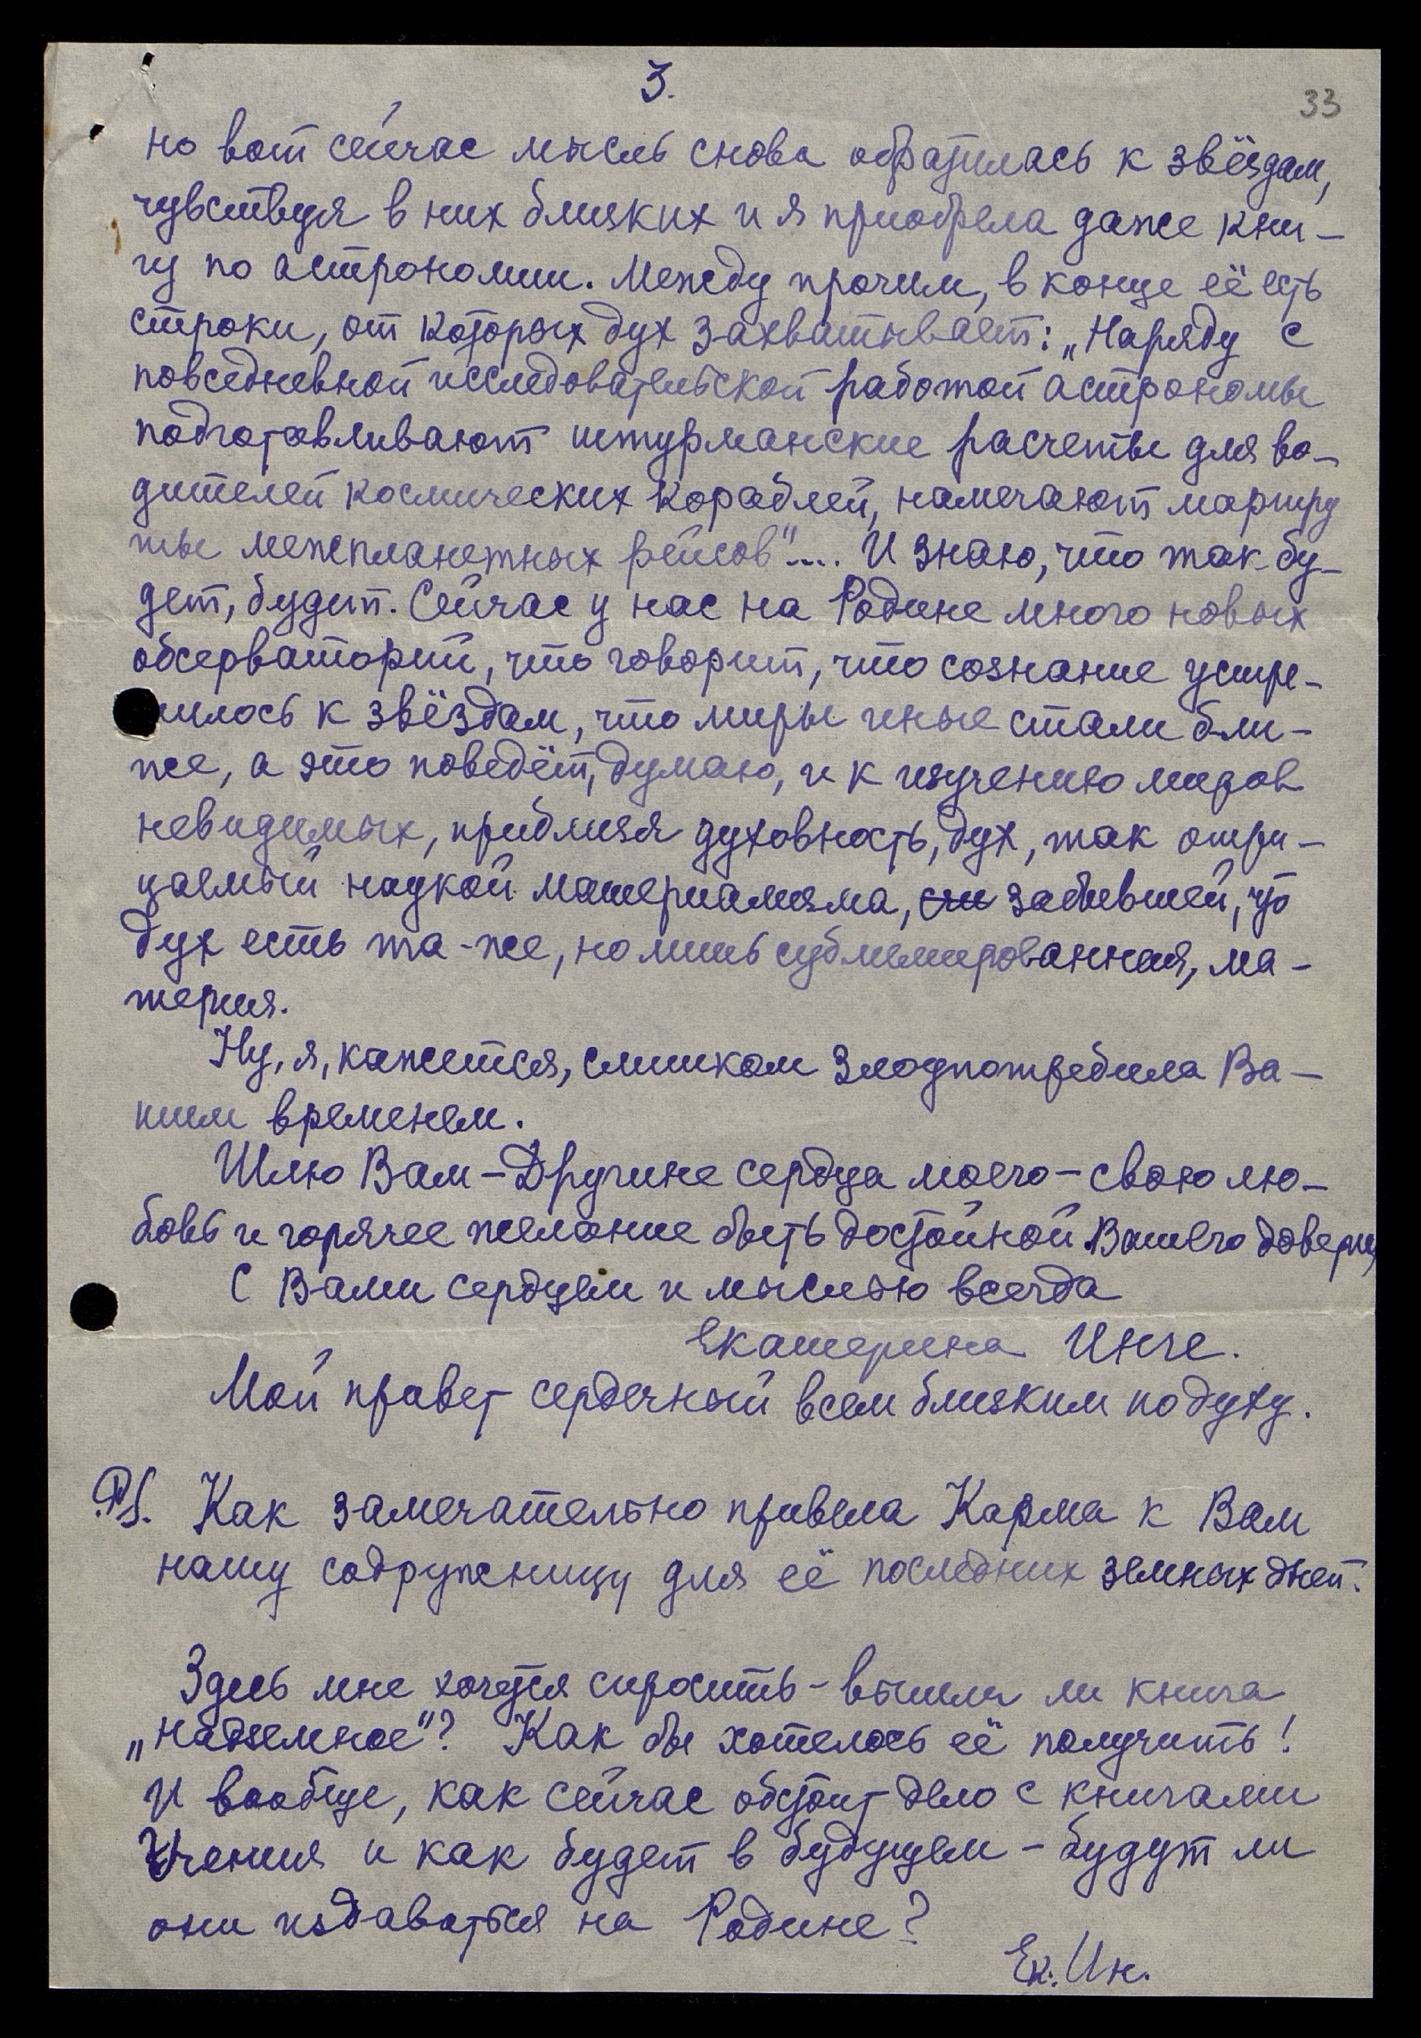 3.
33
но вот сейчас мысль снова обратилась к звёздам,
чувствуя в них близких и я приобрела даже кни-
гу по астрономии. Между прочим, в конце её есть
строки, от которых дух захватывает: „Наряду с
повседневной исследовательской работой астрономы
подготавливают штурманские расчеты для во-
дителей космических кораблей, намечают маршру
ты межпланетных рейсов".... И знаю, что так бу-
дет, будет. Сейчас у нас на Родине много новых
обсерваторий, что говорит, что сознание устре-
милось к звёздам, что миры иные стали бли-
же, а это поведёт, думаю, и к изучению миров
невидимых, приближая духовность, дух, так отри-
цаемый наукой материализма, забывшей, что
дух есть та-же, но лишь сублимированная, ма-
терия.
Ну, я, кажется, слишком злоупотребила Ва-
шим временем.
Шлю Вам – Другине сердца моего – свою лю-
бовь и горячее желание быть достойной Вашего доверия,
С Вами сердцем и мыслью всегда
Екатерина Инге.
Мой привет сердечный всем близким по духу.
P.S. Как замечательно привела Карма к Вам
нашу содружницу для её последних земных дней.
Здесь мне хочется спросить – вышла ли книга
„Надземное"? Как бы хотелось её получить!
И вообще, как сейчас обстоит дело с книгами
Учения и как будет в будущем – будут ли
они издаваться на Родине?
Ек. Ин.